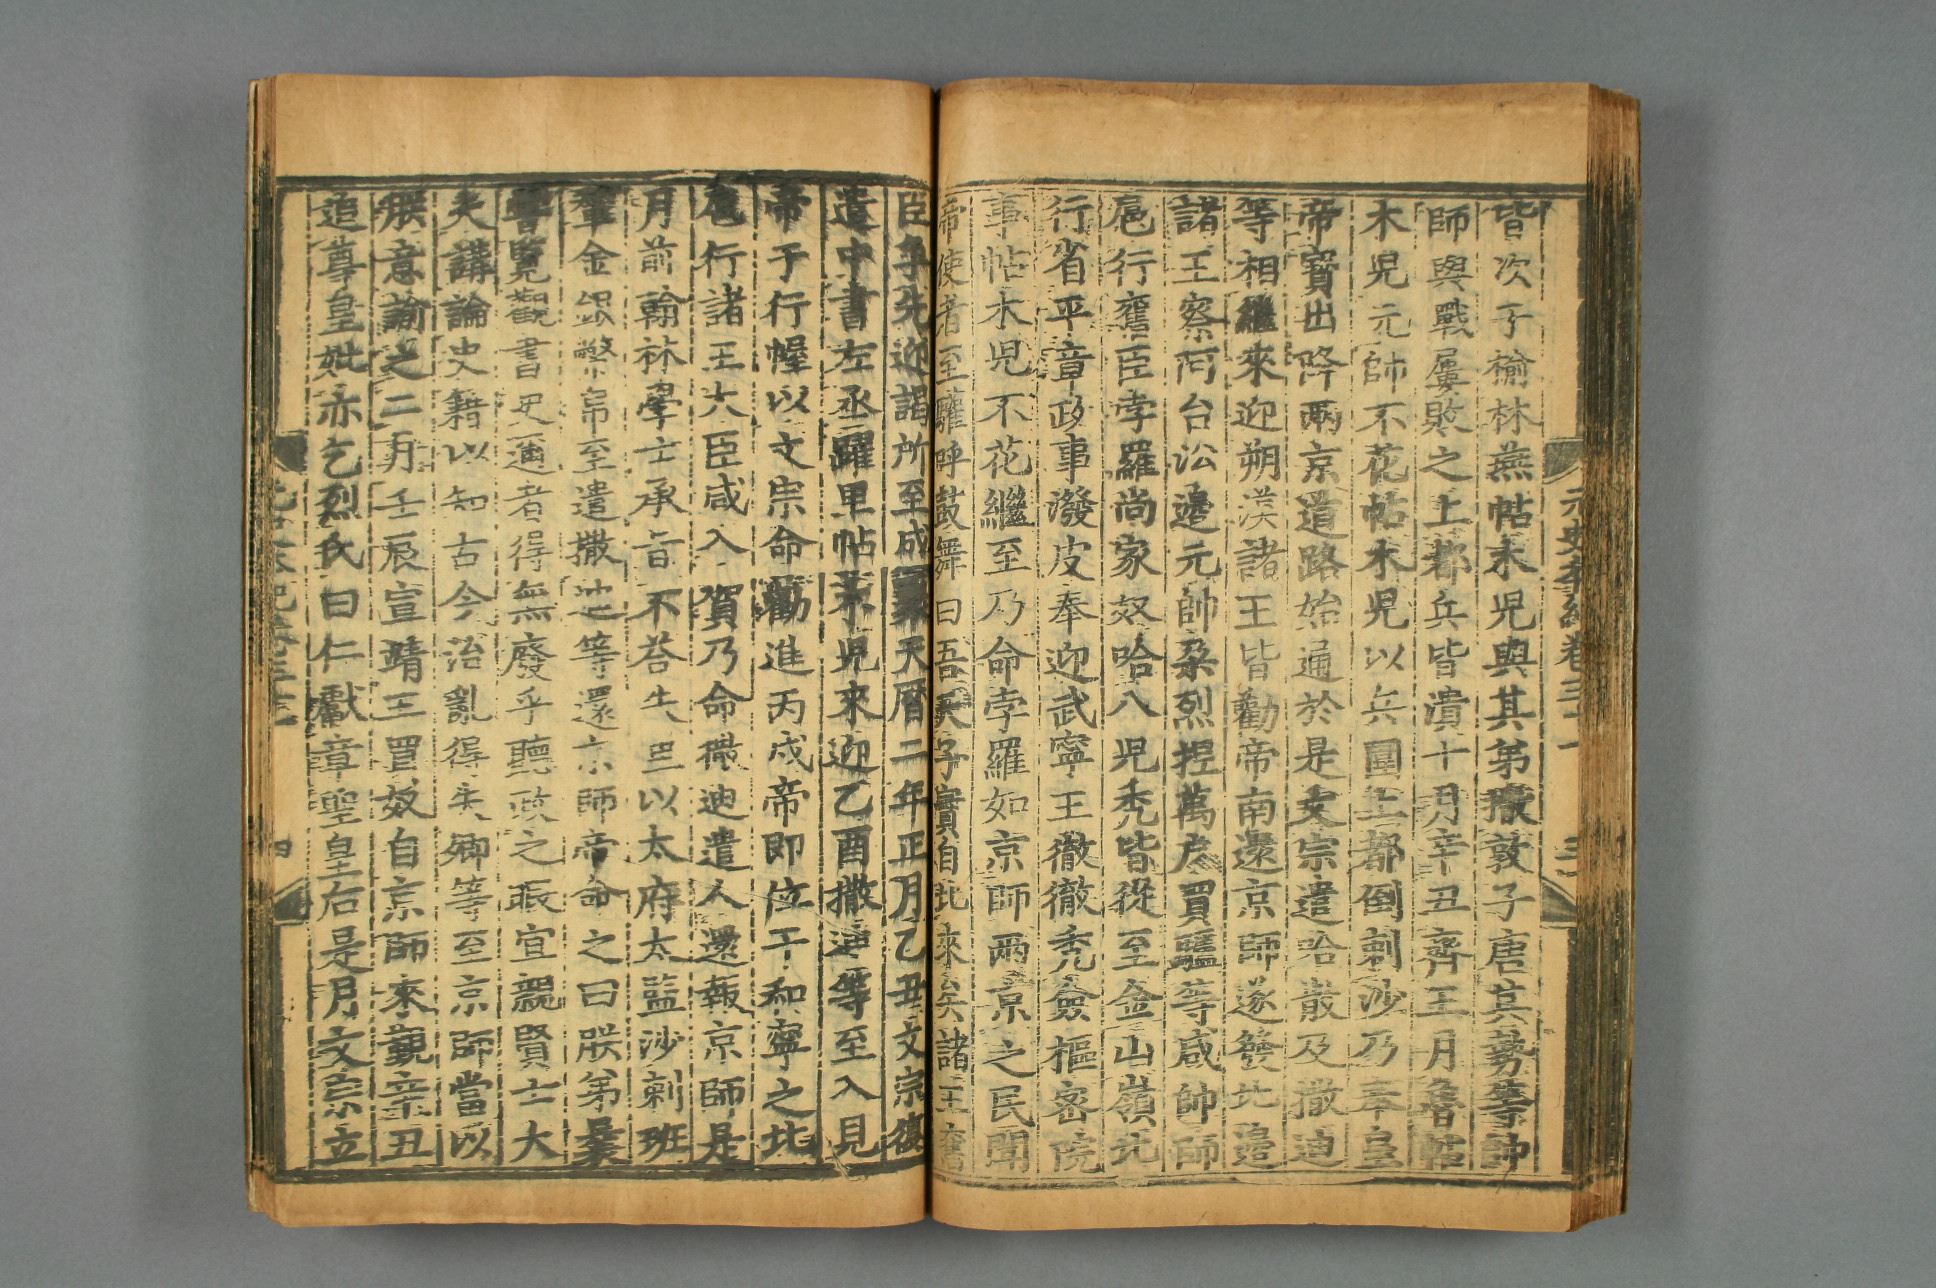 元史本紀卷三十一 三
皆次于榆林燕帖木兒與其弟撒敦子唐其勢等帥
師與戰屢敗之上都兵皆潰十月辛丑齊王月魯帖
木兒元帥不花帖木兒以兵圍上都倒剌沙乃奉皇
帝寶出降兩京道路始通於是文宗遣哈散及撒迪
等相繼來迎朔漠諸王皆勸帝南還京師遂發北邊
諸王察阿台沿邊元帥朶烈捏萬戶買驢等咸帥師
扈行舊臣孛羅尚家奴哈八兒禿皆從至金山嶺北
行省平章政事潑皮奉迎武寧王徹徹禿僉樞密院
事帖木兒不花繼至乃命孛羅如京師兩京之民聞
帝使者至驩呼鼓舞曰吾天子實自北來矣諸王舊
臣爭先迎謁所至成聚天曆二年正月乙丑文宗復
遣中書左丞躍里帖木兒來迎乙酉撒迪等至入見
帝于行幄以文宗命勸進丙戌帝即位于和寧之北
扈行諸王大臣咸入賀乃命撒迪遣人還報京師是
月前翰林學士承旨不荅失里以太府太監沙剌班
輦金銀幣帛至遣撒迪等還京師帝命之曰朕弟曩
嘗覽觀書史邇者得無廢乎聽政之暇宜親賢士大
夫講論史籍以知古今治亂得失卿等至京師當以
朕意諭之二月壬辰宣靖王買奴自京師來覲辛丑
追尊皇妣亦乞烈氏曰仁獻章聖皇后是月文宗立